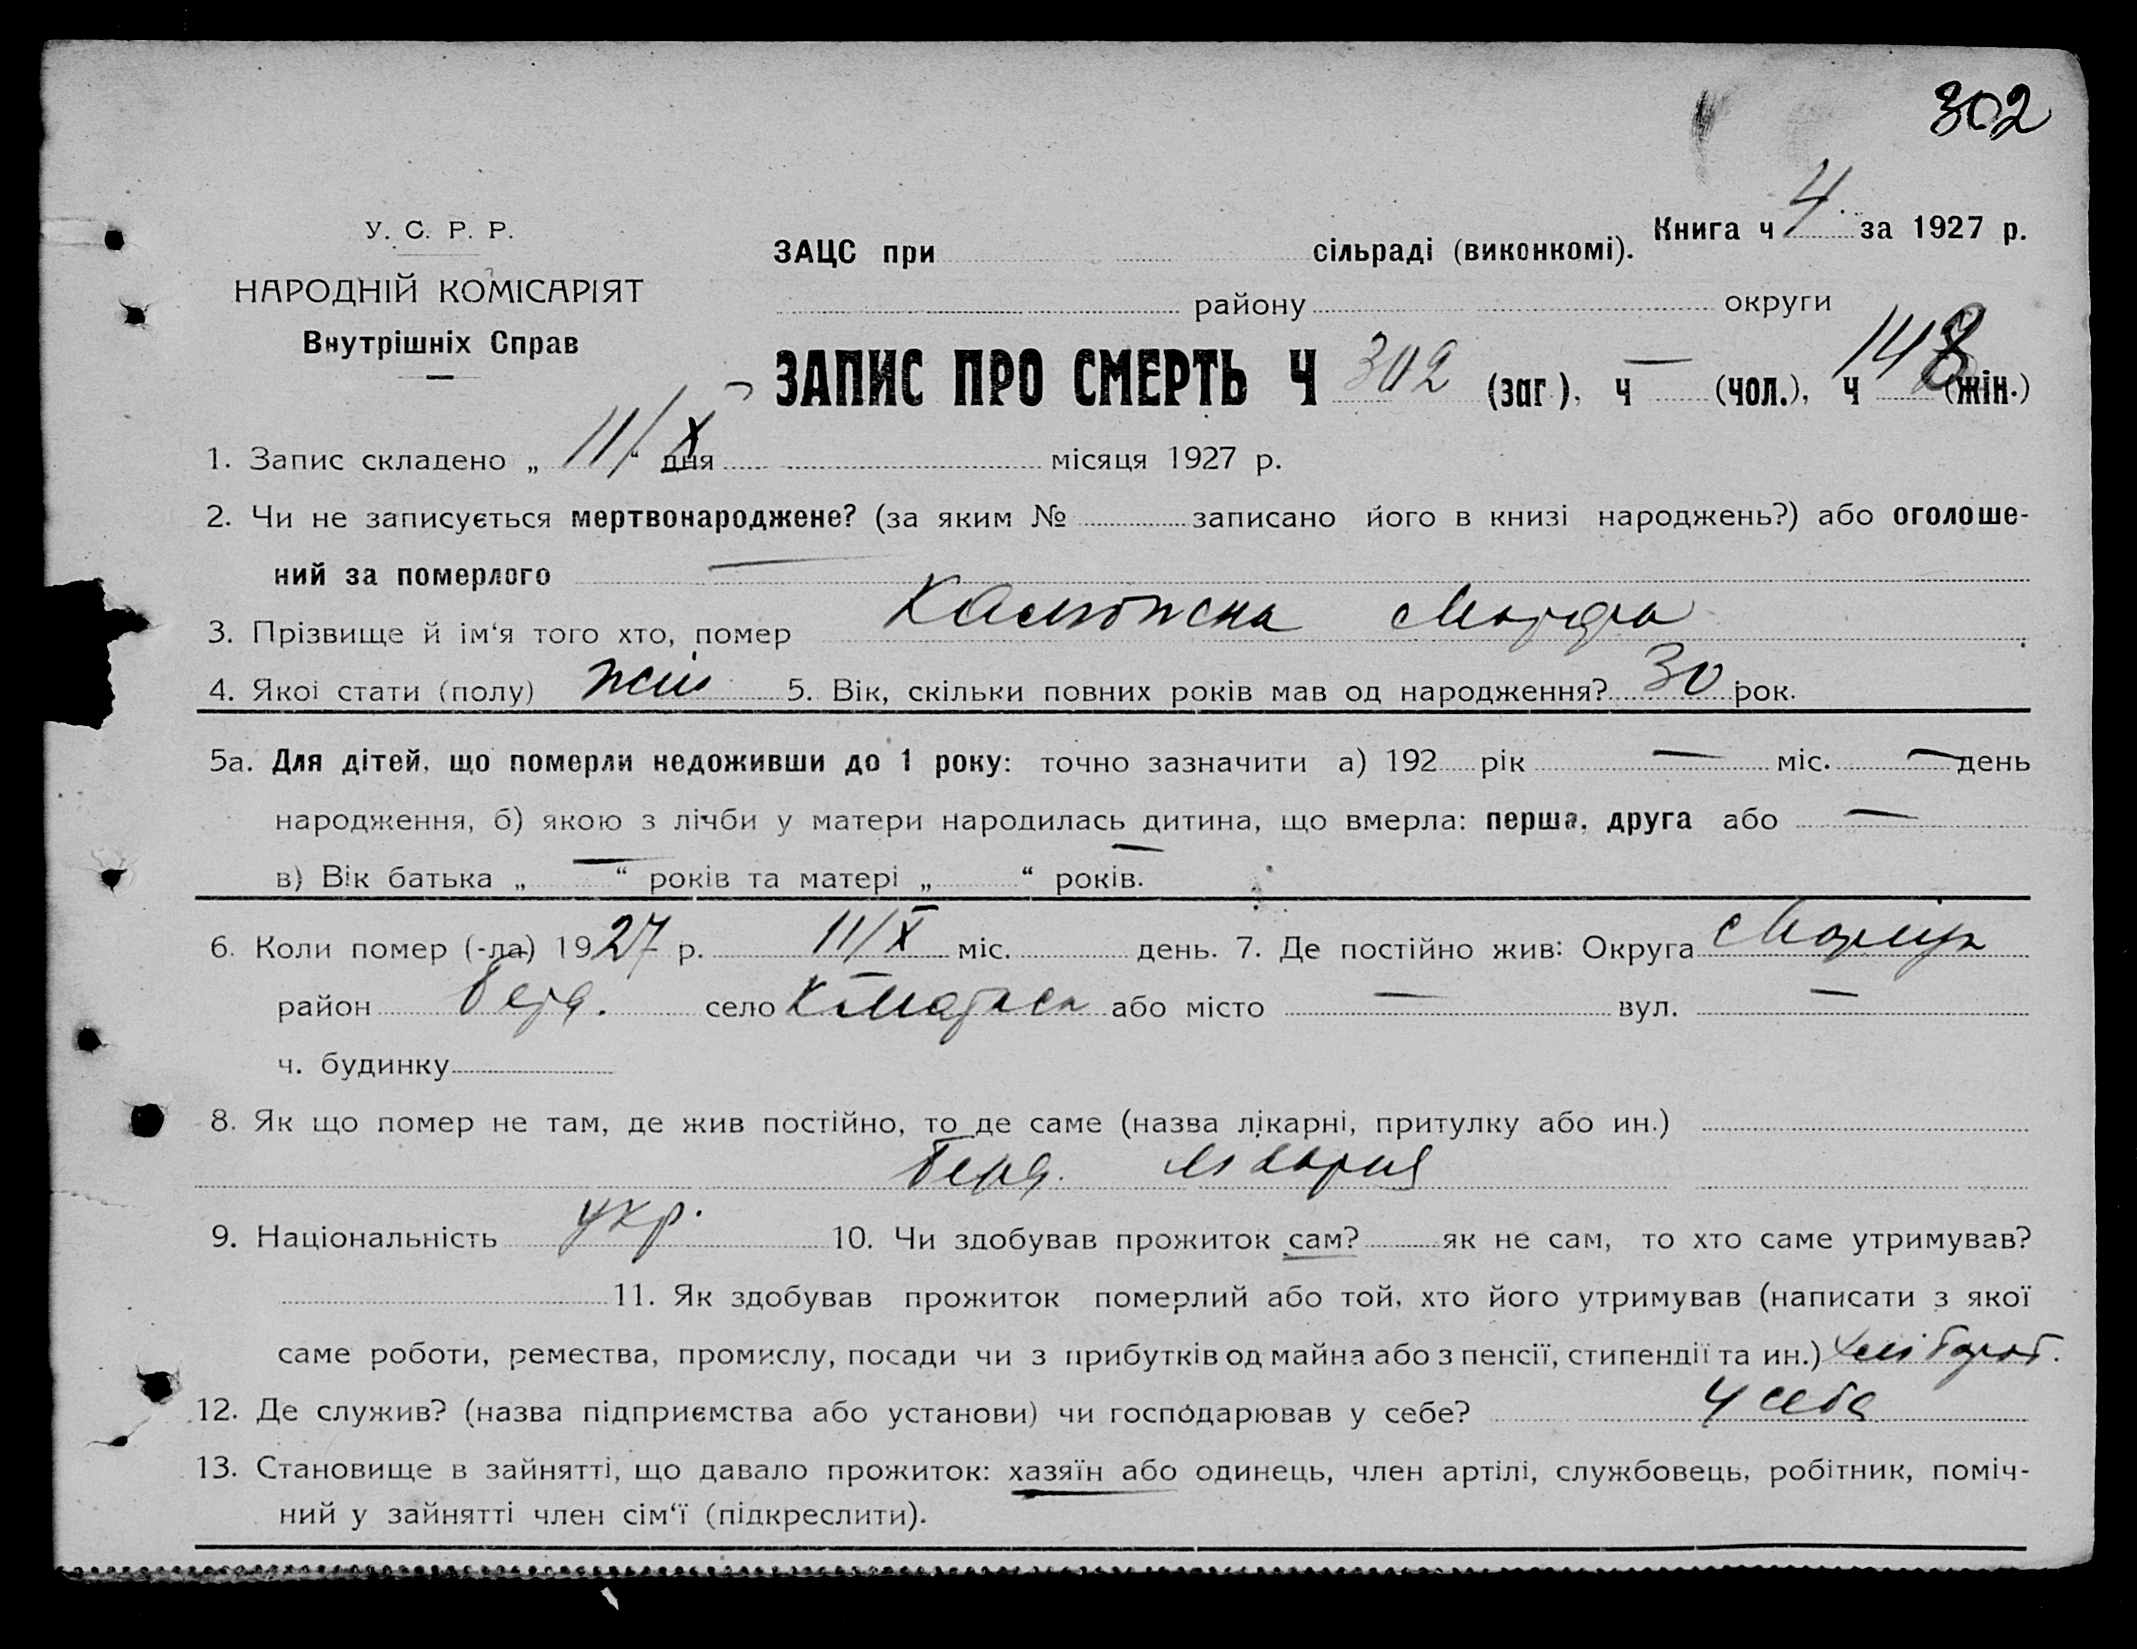 302
У. С. Р. Р.
НАРОДНІЙ КОМІСАРІЯТ
Внутрішніх Справ
Книга ч 4 за 1927 р.
ЗАЦС при сільраді (виконкомі).
району округи
ЗАПИС ПРО СМЕРТЬ Ч 302 (заг.), ч — (чол.), ч 148 (жін.)
1. Запис складено „ 11/X “ дня місяця 1927 р.
2. Чи не записується мертвонароджене? (за яким № записано його в книзі народжень?) або оголоше-
ний за померлого —
3. Прізвище й ім‘я того хто, помер
4. Якої стати (полу) жін 5. Вік, скільки повних років мав од народження? 30 рок.
5а. Для дітей, що померли недоживши до 1 року: точно зазначити а) 192 рік — міс. — день
народження, б) якою з лічби у матери народилась дитина, що вмерла: перша, друга або —
в) Вік батька „ — “ років та матері „ — “ років.
6. Коли помер (-ла) 1927 р. 11/X міс. день. 7. Де постійно жив: Округа
район село або місто — вул. —
ч. будинку
8. Як що помер не там, де жив постійно, то де саме (назва лікарні, притулку або ин.)
Берд. лікарня
9. Національність укр. 10. Чи здобував прожиток сам? як не сам, то хто саме утримував?
11. Як здобував прожиток померлий або той, хто його утримував (написати з якої
саме роботи, ремества, промислу, посади чи з прибутків од майна або з пенсії, стипендії та ин.) хлібороб.
12. Де служив? (назва підприємства або установи) чи господарював у себе? у себе
13. Становище в зайнятті, що давало прожиток: хазяїн або одинець, член артілі, службовець, робітник, поміч-
ний у зайнятті член сім‘ї (підкреслити).